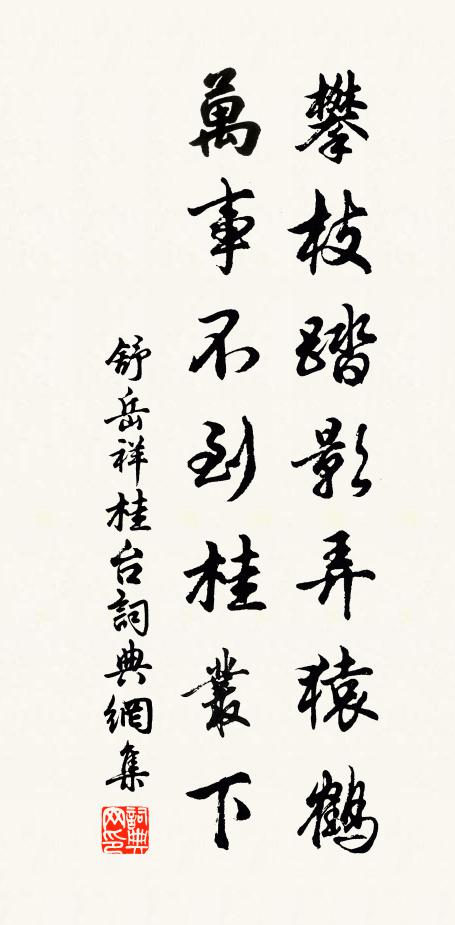 攀枝踏影弄猿鶴
萬事不到桂叢下
舒岳祥桂台詞典網集
詞典网印